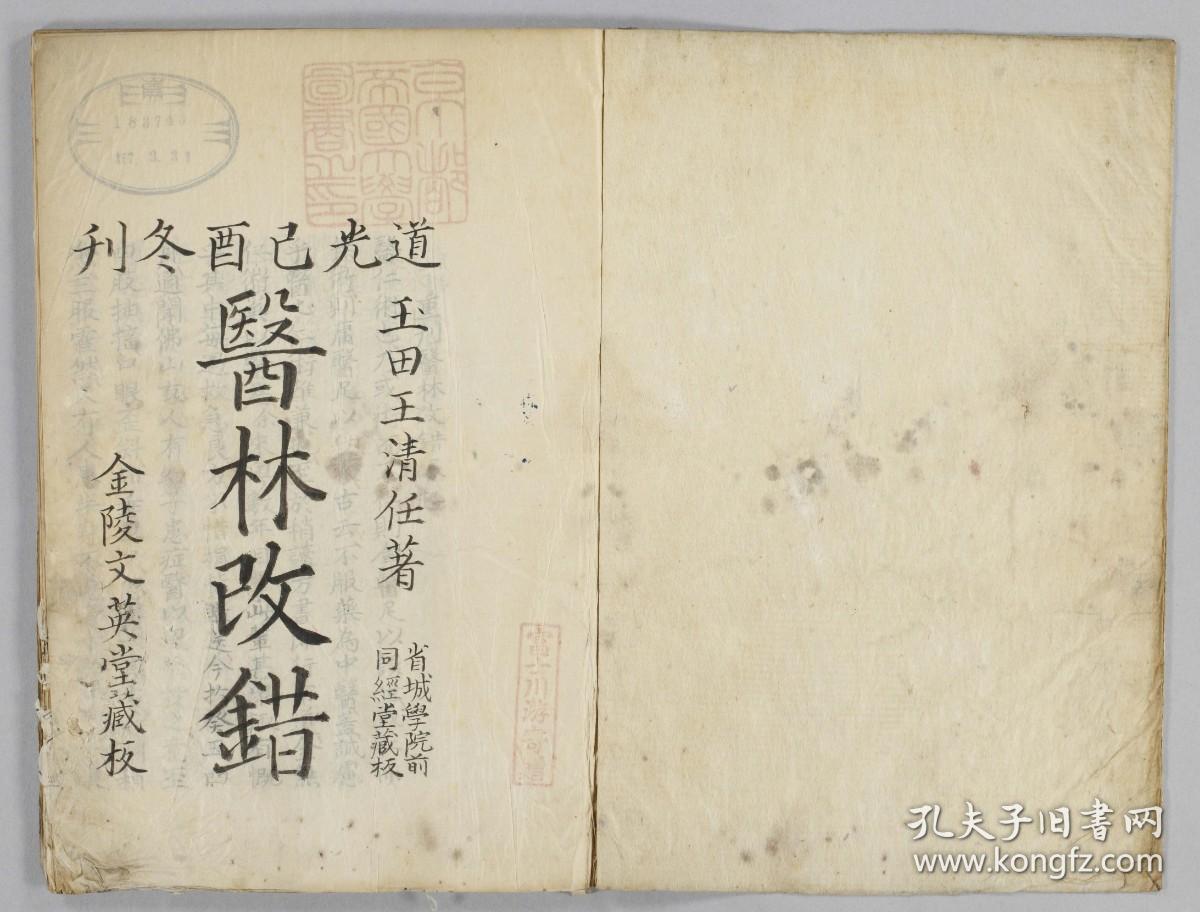 道光己酉冬刊
玉田王清任著
省城學院前
同經堂藏板
醫林改錯
金陵文英堂藏板
京都
帝國大學
圖書之印
富士川游寄贈
孔夫子旧书网
www.kongfz.com